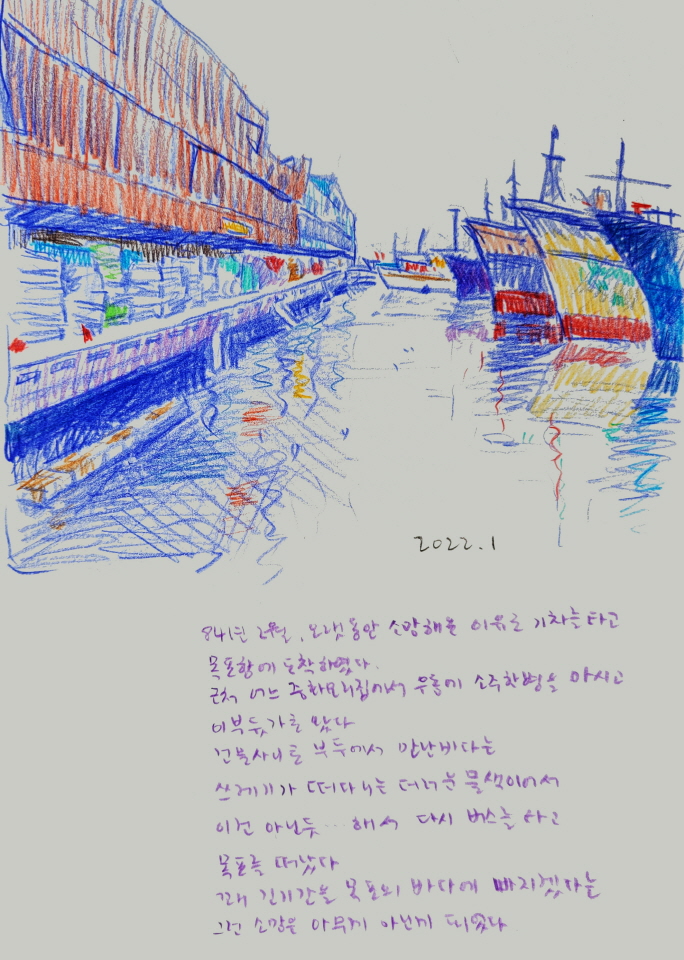 2022.1
84년 2월, 오랫동안 소망해온 이유로 기차를 타고
목포항에 도착하였다.
근처 어느 중화요리집에서 우동에 소주한병을 마시고
이부둣가를 왔다
건물사이로 부두에서 만난바다는
쓰레기가 떠다니는 더러운 물색이어서
이건 아닌듯... 해서 다시 버스를 타고
목포를 떠났다
꽤 긴기간을 목포의 바다에 빠지겠다는
그런 소망은 아무것 아닌게 되었다